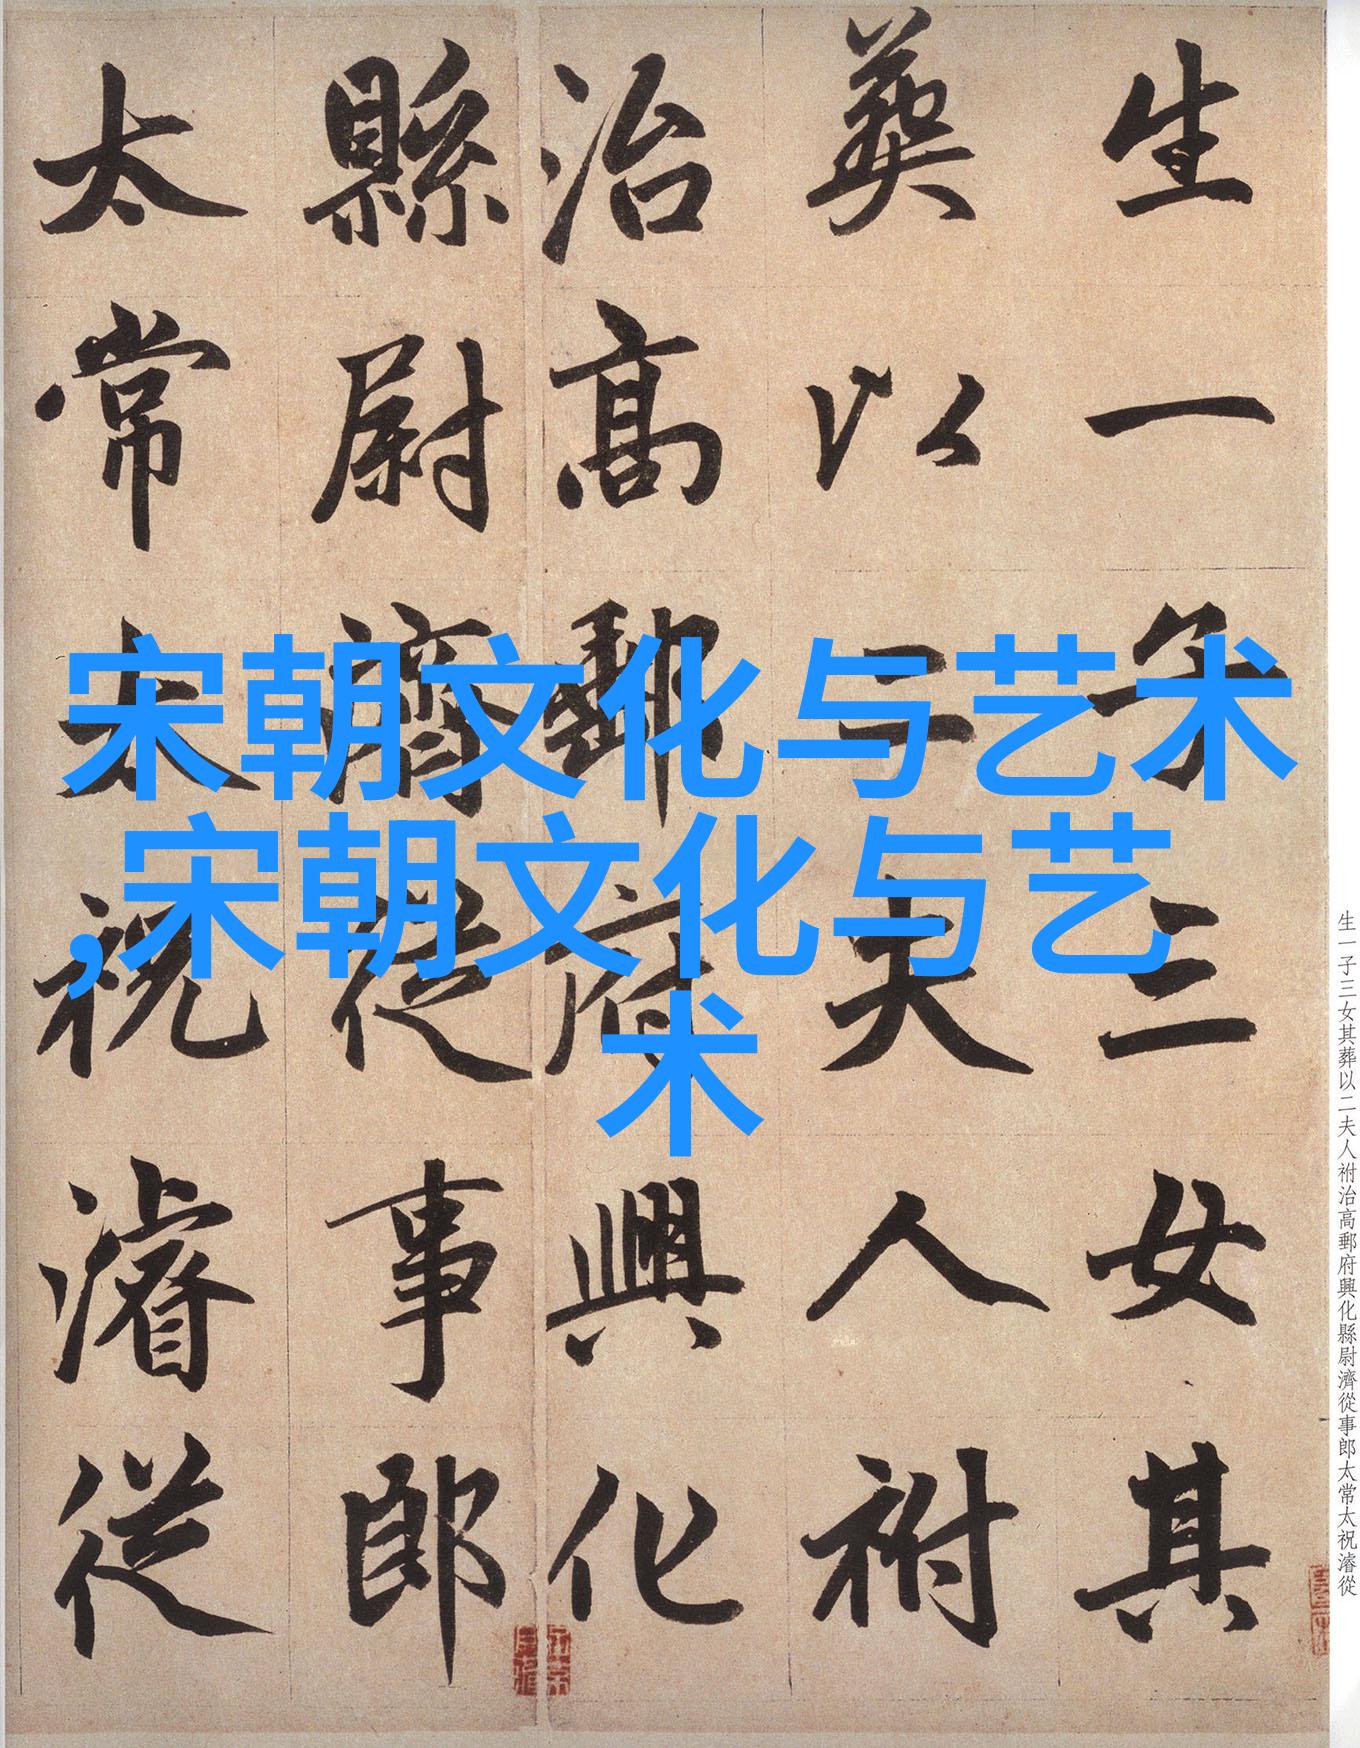 宋朝文化与艺术
,宋朝文化与艺
术
生一子三女其
葬以二夫人祔
治高郵府興化
縣尉濟從事郎
太常太祝濬從
生一子三女其葬以二夫人祔治高郵府興化縣尉濟從事郎太常太祝濬從